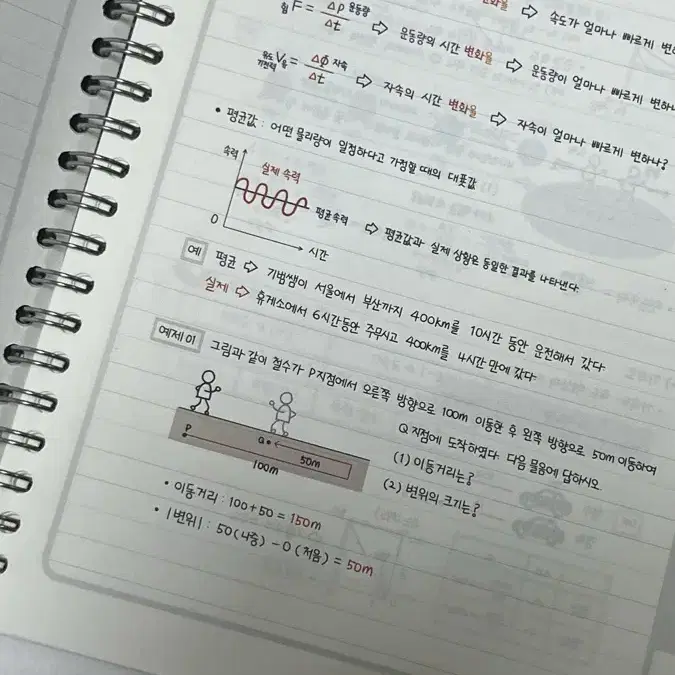 변화율 ⇨ 속도가 얼마나 빠르게 변하
힘 F = Δp 운동량 / Δt ⇨ 운동량의 시간 변화율 ⇨ 운동량이 얼마나 빠르게 변하나
유도 기전력 V = Δφ 자속 / Δt ⇨ 자속의 시간 변화율 ⇨ 자속이 얼마나 빠르게 변하나?
• 평균값 : 어떤 물리량이 일정하다고 가정할 때의 대푯값
속력
실제 속력
평균속력 ⇨ 평균값과 실제 상황은 동일한 결과를 나타낸다.
0
시간
예 평균 ⇨ 기범쌤이 서울에서 부산까지 400km를 10시간 동안 운전해서 갔다
실제 ⇨ 휴게소에서 6시간동안 주무시고 400km를 4시간 만에 갔다
예제 01 그림과 같이 철수가 P지점에서 오른쪽 방향으로 100m 이동한 후 왼쪽 방향으로 50m 이동하여
Q지점에 도착하였다. 다음 물음에 답하시오.
(1) 이동거리는?
(2) 변위의 크기는?
P
Q
50m
100m
• 이동거리 : 100+50 = 150m
• |변위| : 50(나중) - 0(처음) = 50m